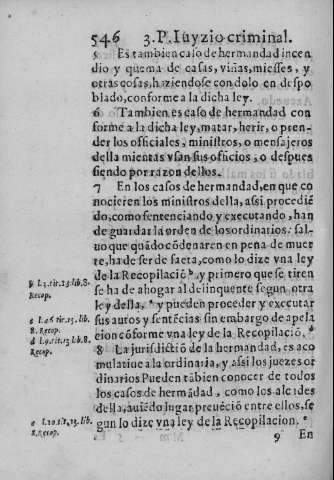 546 3.P.Iuyzio criminal.
5 Es tambien caso de hermandad incen
dio y quema de casas, viñas, miesses, y
otras cosas, haziendose con dolo en despo
blado, conforme a la dicha ley.
6 Tambien es caso de hermandad con
forme a la dicha ley, matar, herir, o pren-
der los officiales, ministros, o mensajeros
della mientas vsan sus officios, o despues
siendo por razon dellos.
7 En los casos de hermandad, en que co
nocieren los ministros della, assi procediē
dō, como sentenciando y executando, han
de guardar la orden de los ordinarios: sal-
uo que quādo cōdenaren en pena de muer
te, ha de ser de saeta, como lo dize vna ley
de la Recopilaciō b, y primero que se tiren
se ha de ahogar al delinquente segun otra
ley della. c y pueden proceder y executar
sus autos y sentēcias sin embargo de apela
cion cōforme vna ley de la Recopilaciō. d
8 La jurisdictiō de la hermandad, es aco
mulatiue a la ordinaria, y assi los juezes or
dinarios Pueden tābien conocer de todos
los casos de hermādad, como los alcaldes
della, auiēdo lugar preuēciō entre ellos, se
gun lo dize vna ley de la Recopilacion. e
9 En
b l.2.tit.13.lib.8.
Recop.
c l.46 tit.13.lib.
8.Recop.
d l.9.tit.13 lib.8.
Recop.
e l.10.tit.13.lib.
8.Recop.